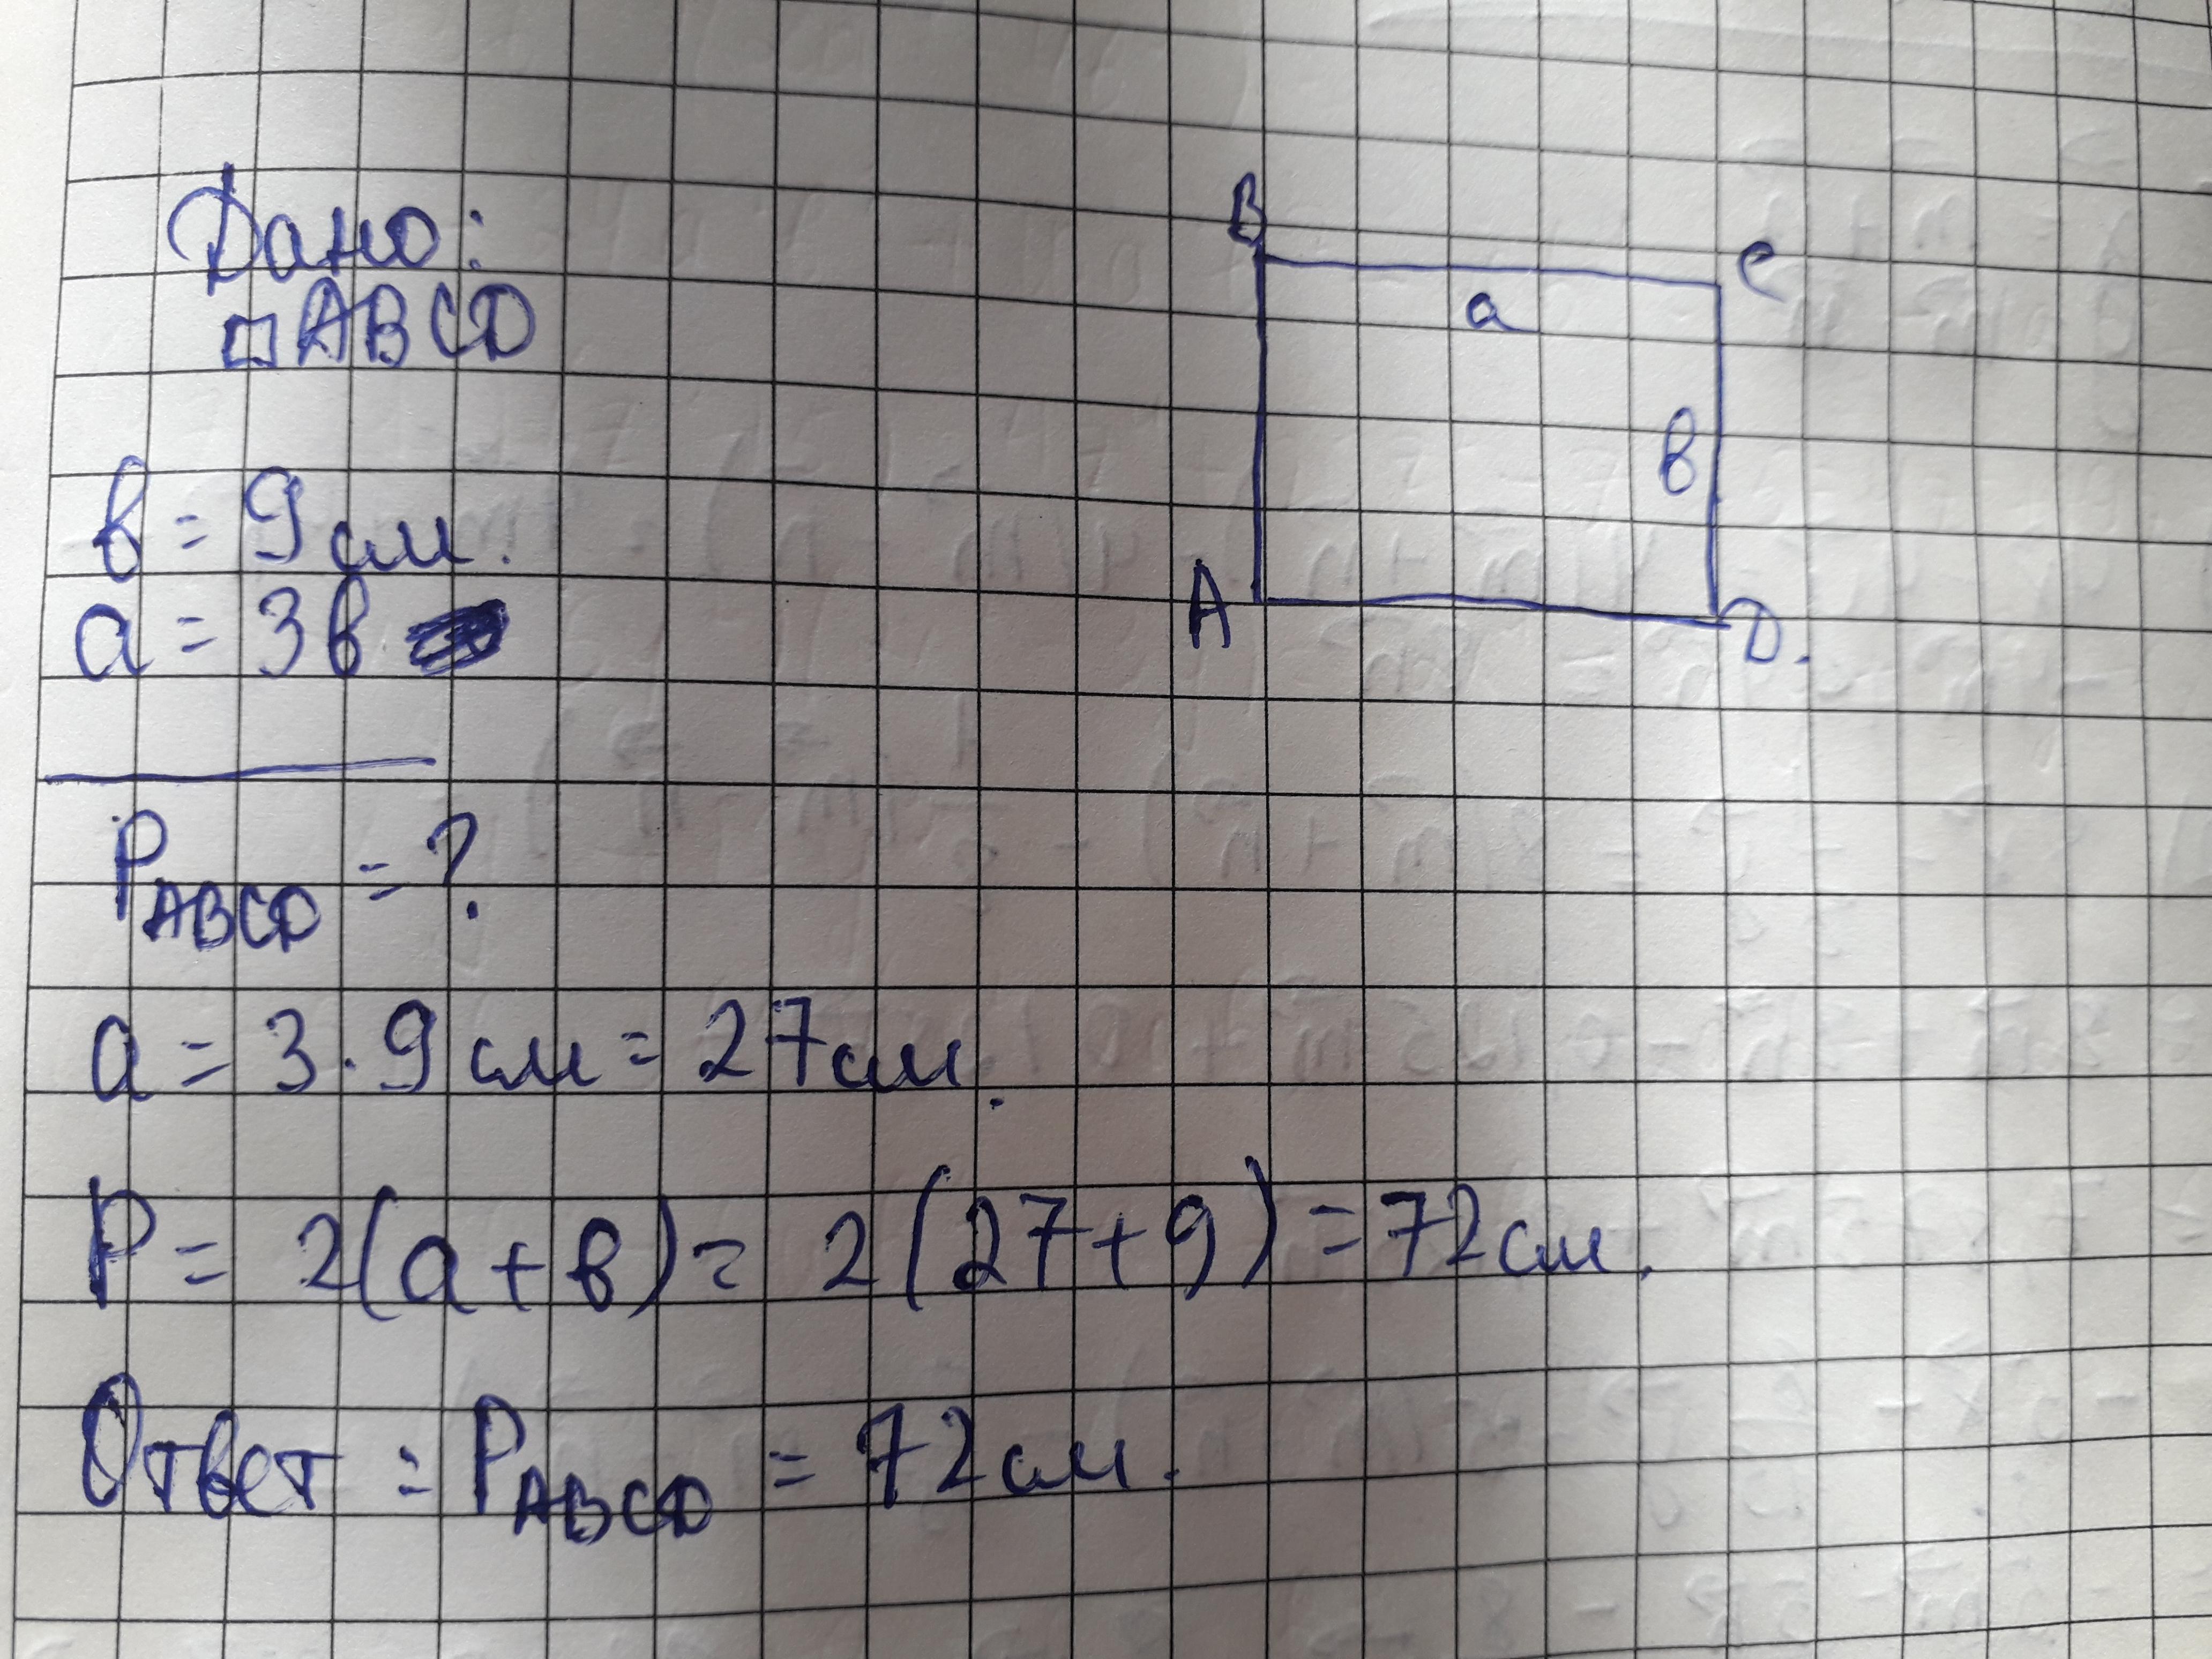 Дано:
□ABCD
в = 9 см.
а = 3в
P ABCD = ?
а = 3 · 9 см = 27 см.
P = 2(а + в) = 2(27 + 9) = 72 см.
Ответ = P ABCD = 72 см.
B
C
а
в
A
D.